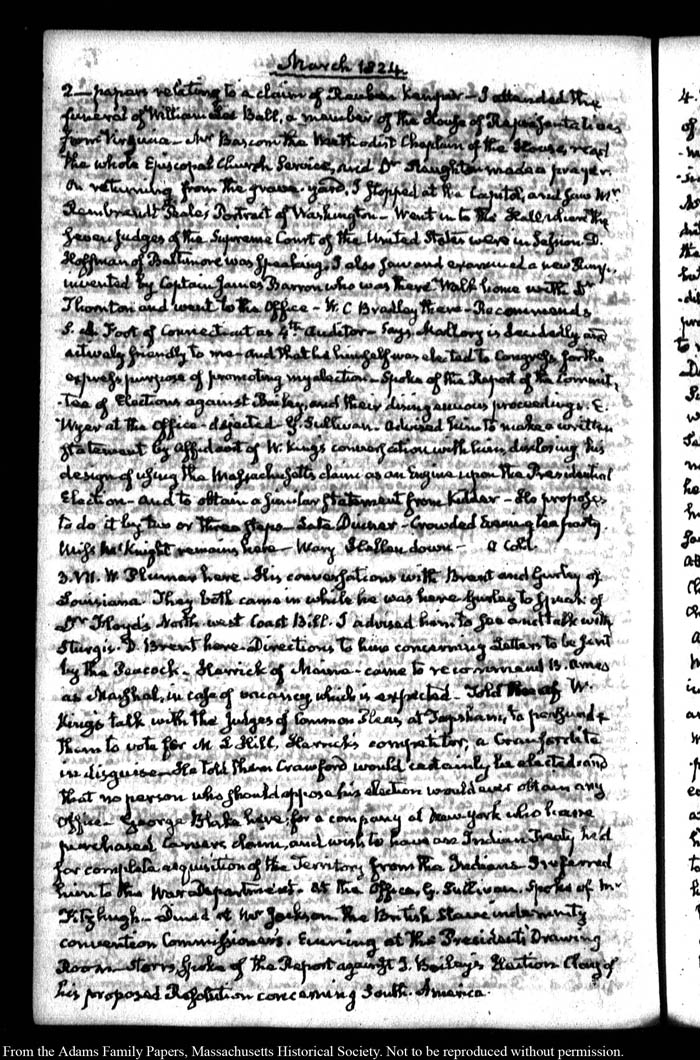 March 1824.
2 — papers relating to a claim of Reuben Kemper — I attended the
funeral of William Lee Ball, a member of the House of Representatives
from Virginia — Mr Bascom the Methodist Chaplain of the House, read
the whole Episcopal Church Service, and Dr made a prayer.
On returning from the grave-yard, I stopped at the Capitol, and saw Mr
Rembrandt Peale's Portrait of Washington — Went in to the Hall where the
Seven judges of the Supreme Court of the United States were in Session D.
Hoffman of Baltimore was speaking. I also saw and examined a new
invented by Captain James Barron who was there Walk home with Dr
Thornton and went to the Office — W. C Bradley there — Recommends
S. A. Foot of Connecticut as 4th Auditor — Says Mallary is decidedly and
actively friendly to me — and that he himself was elected to Congress for the
express purpose of promoting my election — Spoke of the Report of the Commit-
tee of Elections against Bailey, and their disingenuous proceedings. E.
Wyer at the office — dejected G. Sullivan. Advised him to make a written
statement by affidavit of W. King's conversation with him, disclosing his
design of using the Massachusetts claim as an Engine upon the Presidential
Election — And to obtain a similar statement from Kidder — He proposes
to do it by two or three steps — Late Dinner — Crowded Evening tea party.
Miss McKnight remains here — Mary Hellen down — a Cold.
3. VII. W Plumer here. His conversations with Brent and Gurley of
Louisiana. They both came in while he was here Gurley to speak of
Dr Floyd's North west Coast Bill. I advised him to see and talk with
Sturgis. D. Brent here — Directions to him concerning Letters to be sent
by the Peacock. Herrick of Maine — came to recommend B. Ames
as Marshal, in case of vacancy which is expected — Told W.
King's talk with the Judges of Common Pleas, at Topsham, to persuade
them to vote for M L Hill, Herrick's competitor, a Crawfordite
in disguise — He told them Crawford would certainly be elected: and
that no person who should oppose his election would ever obtain any
Office — George Blake here: for a company at New York who have
purchased Carver's claim, and wish to have an Indian Treaty held
for complete acquisition of the Territory from the Indians. I referred
him to the War Department. At the Office, G. Sullivan. Spoke of Mr
Fitzhugh — Dined at Mr Jackson the British Slave indemnity
convention Commissioner's. Evening at the President's Drawing
Room — Storrs, spoke of the Report against J. Bailey's Election Clay of
his proposed Resolution concerning South-America.
From the Adams Family Papers, Massachusetts Historical Society. Not to be reproduced without permission.